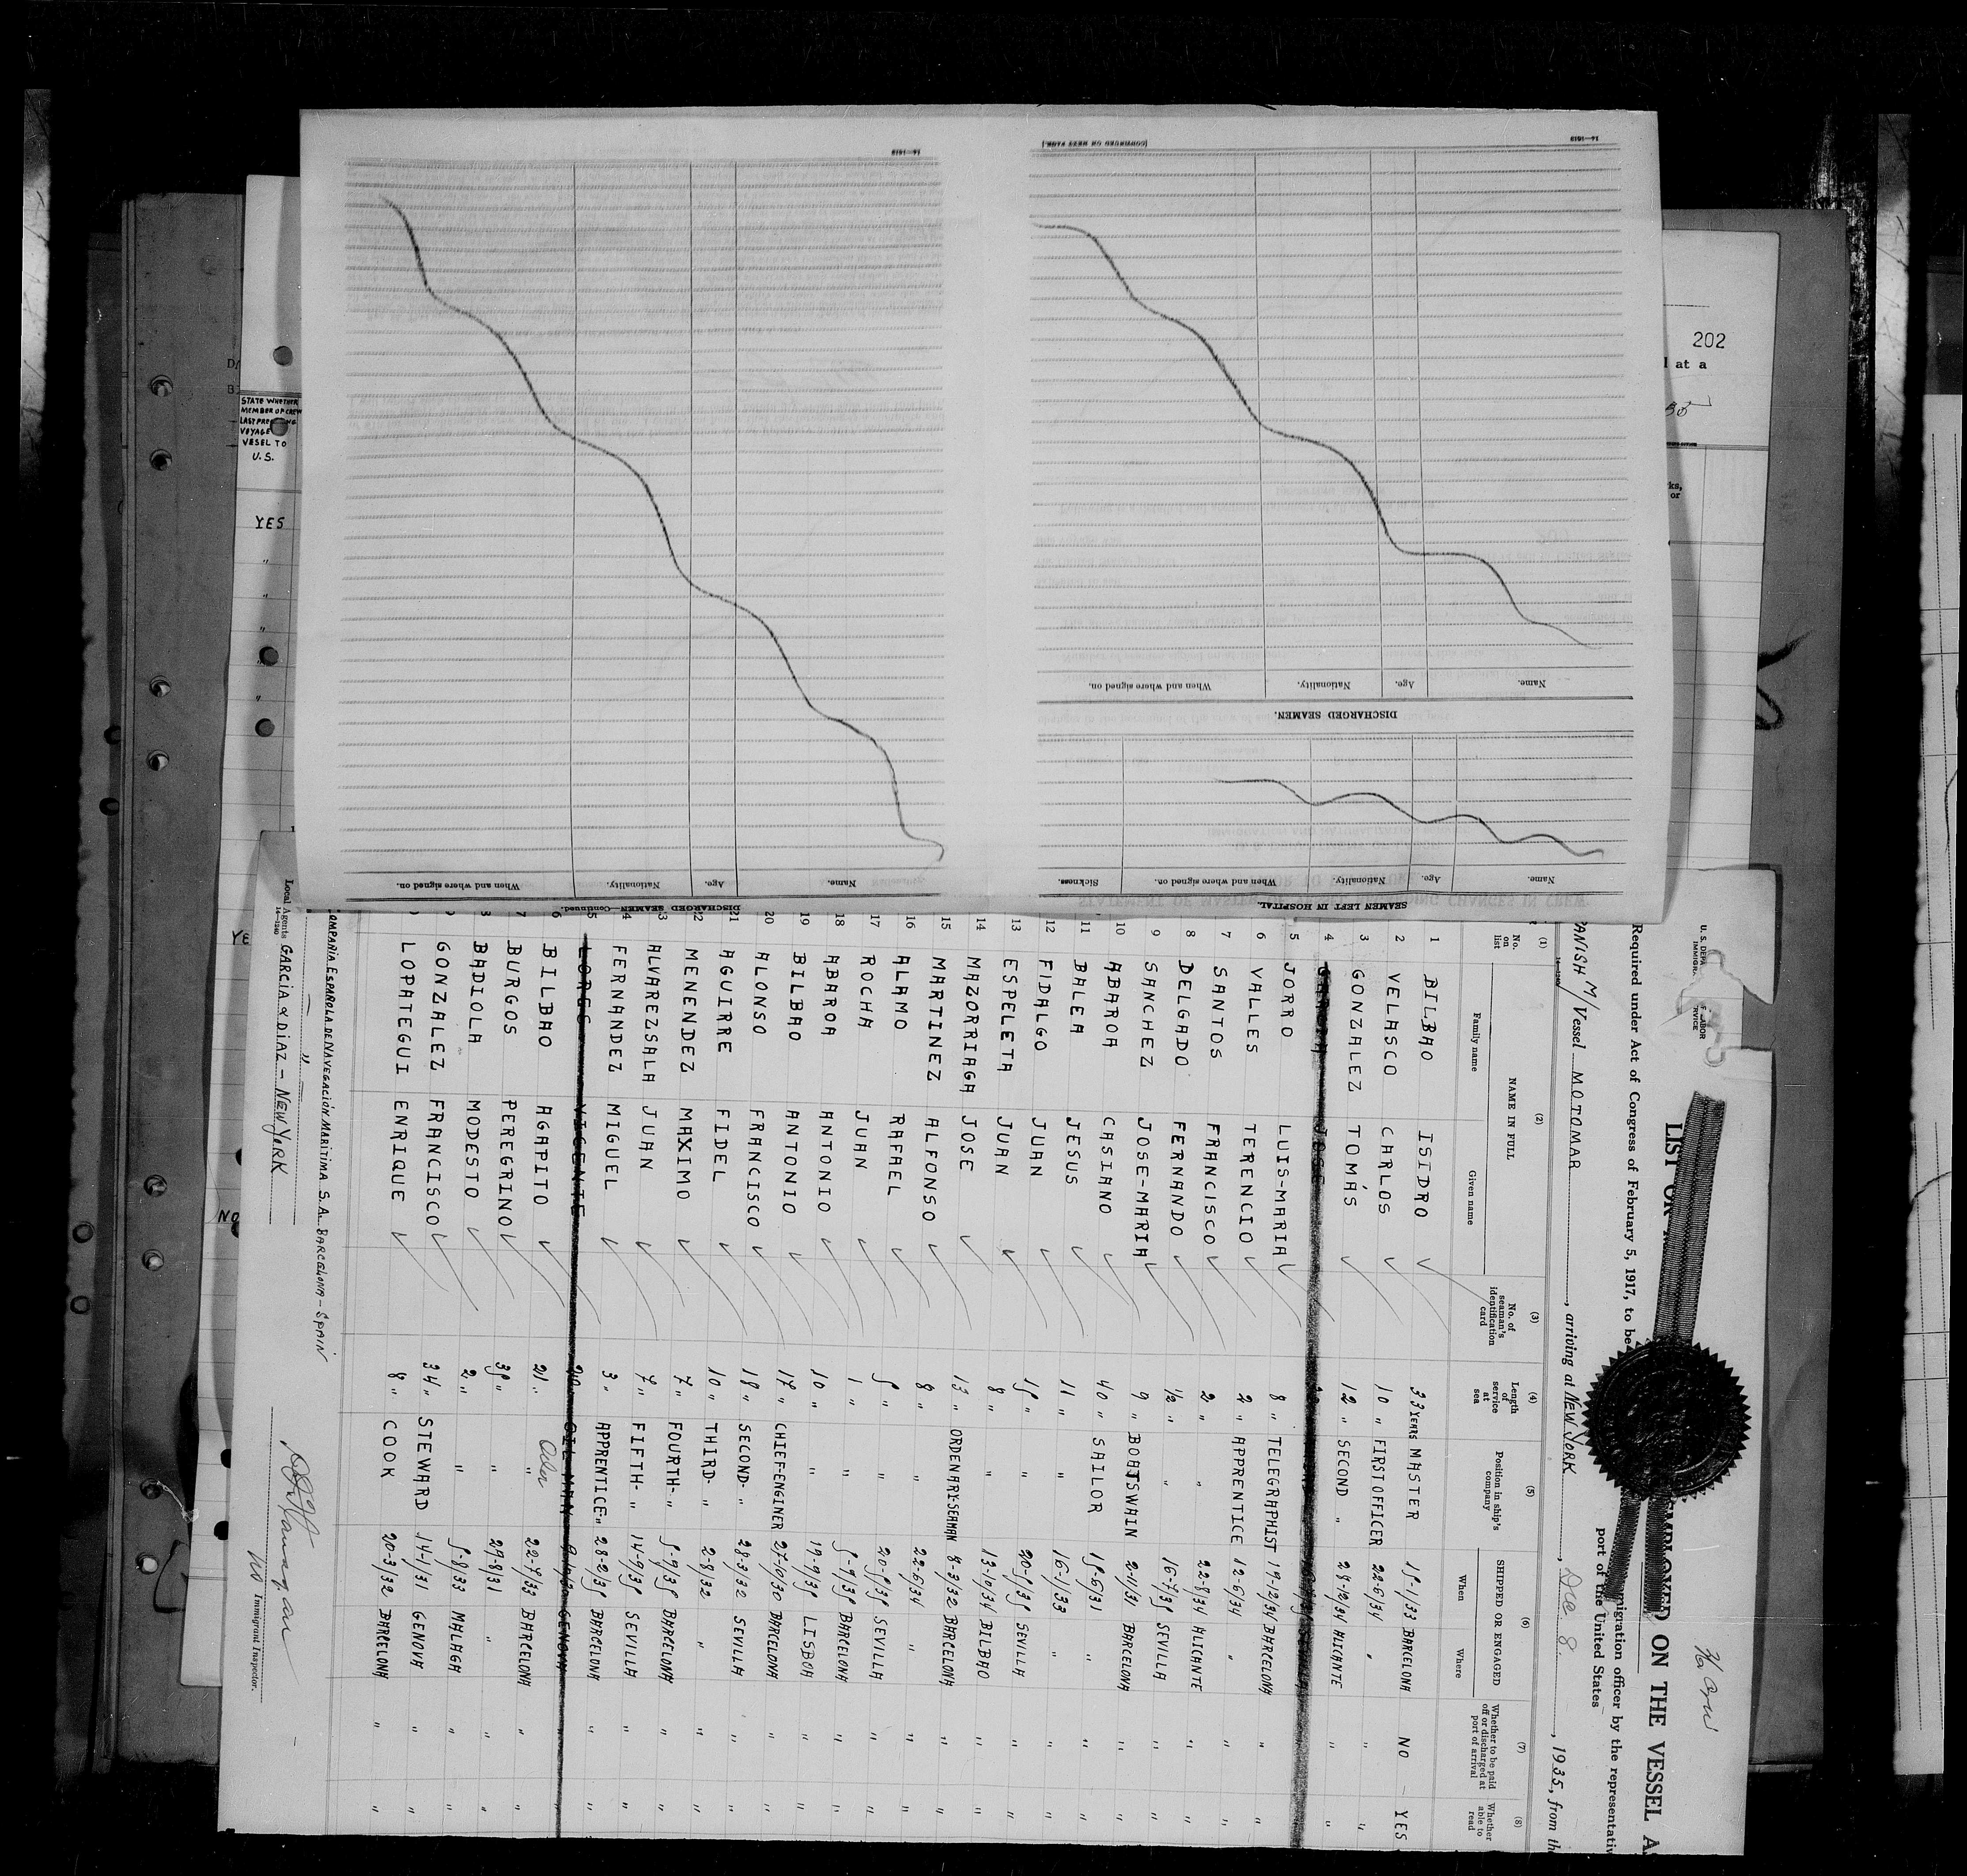 202
d at a
STATE WHETHER
MEMBER OF CREW
VOYAGE
VESSEL TO
U.S.
YES
"
"
"
"
"
NO
16—1613
[CONTINUED ON NEXT PAGE.]
16—1613
Name. Age. Nationality. When and where signed on.
DISCHARGED SEAMEN.
Name. Age. Nationality. When and where signed on. Sickness.
SEAMEN LEFT IN HOSPITAL
Name. Age. Nationality. When and where signed on.
DISCHARGED SEAMEN—Continued.
STATEMENT OF MASTER
CHANGES IN CREW
U. S. DEPA
IMMIGR
F LABOR
RVICE
LIST OR
EMPLOYED ON THE VESSEL A
Required under Act of Congress of February 5, 1917, to be
migration officer by the representativ
port of the United States
ANISH M/ Vessel MOTOMAR, arriving at NEW YORK, Dec 8, 1935, from th
(1) (2) (3) (4) (5) (6) (7) (8)
No. on list NAME IN FULL No. of seaman's identification card Length of service at sea Position in ship's company SHIPPED OR ENGAGED Whether to be paid off or discharged at port of arrival Whether able to read
Family name Given name When Where
1 BILBAO ISIDRO 33 YEARS MASTER 15-1/33 BARCELONA NO YES
2 VELASCO CARLOS 10 " FIRST OFFICER 22-6/34 " " "
3 GONZALEZ TOMÁS 12 " SECOND " 28-12/34 ALICANTE " "
4 JOSE
5 JORRO LUIS-MARIA 8 " TELEGRAPHIST 19-12/34 BARCELONA " "
6 VALLES TERENCIO 2 " APPRENTICE 12-6/34 " " "
7 SANTOS FRANCISCO 2 " " 22-8/34 ALICANTE " "
8 DELGADO FERNANDO 1/2 " " 16-7/35 SEVILLA " "
9 SANCHEZ JOSE-MARIA 9 " BOATSWAIN 2-11/31 BARCELONA " "
10 ABAROA CASIANO 40 " SAILOR 15-6/31 " " "
11 BALEA JESUS 11 " " 16-1/33 " " "
12 FIDALGO JUAN 15 " " 20-5/35 SEVILLA " "
13 ESPELETA JUAN 8 " " 13-10/34 BILBAO " "
14 MAZORRIAGA JOSE 13 " ORDENARY-SEAMAN 8-3/32 BARCELONA " "
15 MARTINEZ ALFONSO 8 " " 22-6/34 " " "
16 ALAMO RAFAEL 5 " " 20-5/35 SEVILLA " "
17 ROCHA JUAN 1 " " 5-9/35 BARCELONA " "
18 ABAROA ANTONIO 10 " " 19-9/35 LISBOA " "
19 BILBAO ANTONIO 17 " CHIEF-ENGINER 27-10/30 BARCELONA " "
20 ALONSO FRANCISCO 18 " SECOND- " 28-3/32 SEVILLA " "
21 AGUIRRE FIDEL 10 " THIRD- " 2-8/32 " " "
22 MENENDEZ MAXIMO 7 " FOURTH- " 5-9/35 BARCELONA " "
23 ALVAREZSALA JUAN 7 " FIFTH- " 14-9/35 SEVILLA " "
24 FERNANDEZ MIGUEL 3 " APPRENTICE- " 28-2/35 BARCELONA " "
5 VICENTE OIL-MAN GENOVA
6 BILBAO AGAPITO 21 " Oiler 22-7/33 BARCELONA " "
7 BURGOS PEREGRINO 35 " " 29-8/31 " " "
8 BADIOLA MODESTO 2 " " 5-8/33 MALAGA " "
9 GONZALEZ FRANCISCO 34 " STEWARD 14-1/31 GENOVA " "
LOPATEGUI ENRIQUE 8 " COOK 20-3/32 BARCELONA " "
COMPAÑIA ESPAÑOLA DE NAVEGACIÓN MARÍTIMA S.A. BARCELONA - SPAIN
"
Local Agents GARCIA & DIAZ - NEW YORK
14—1240
Immigrant Inspector.